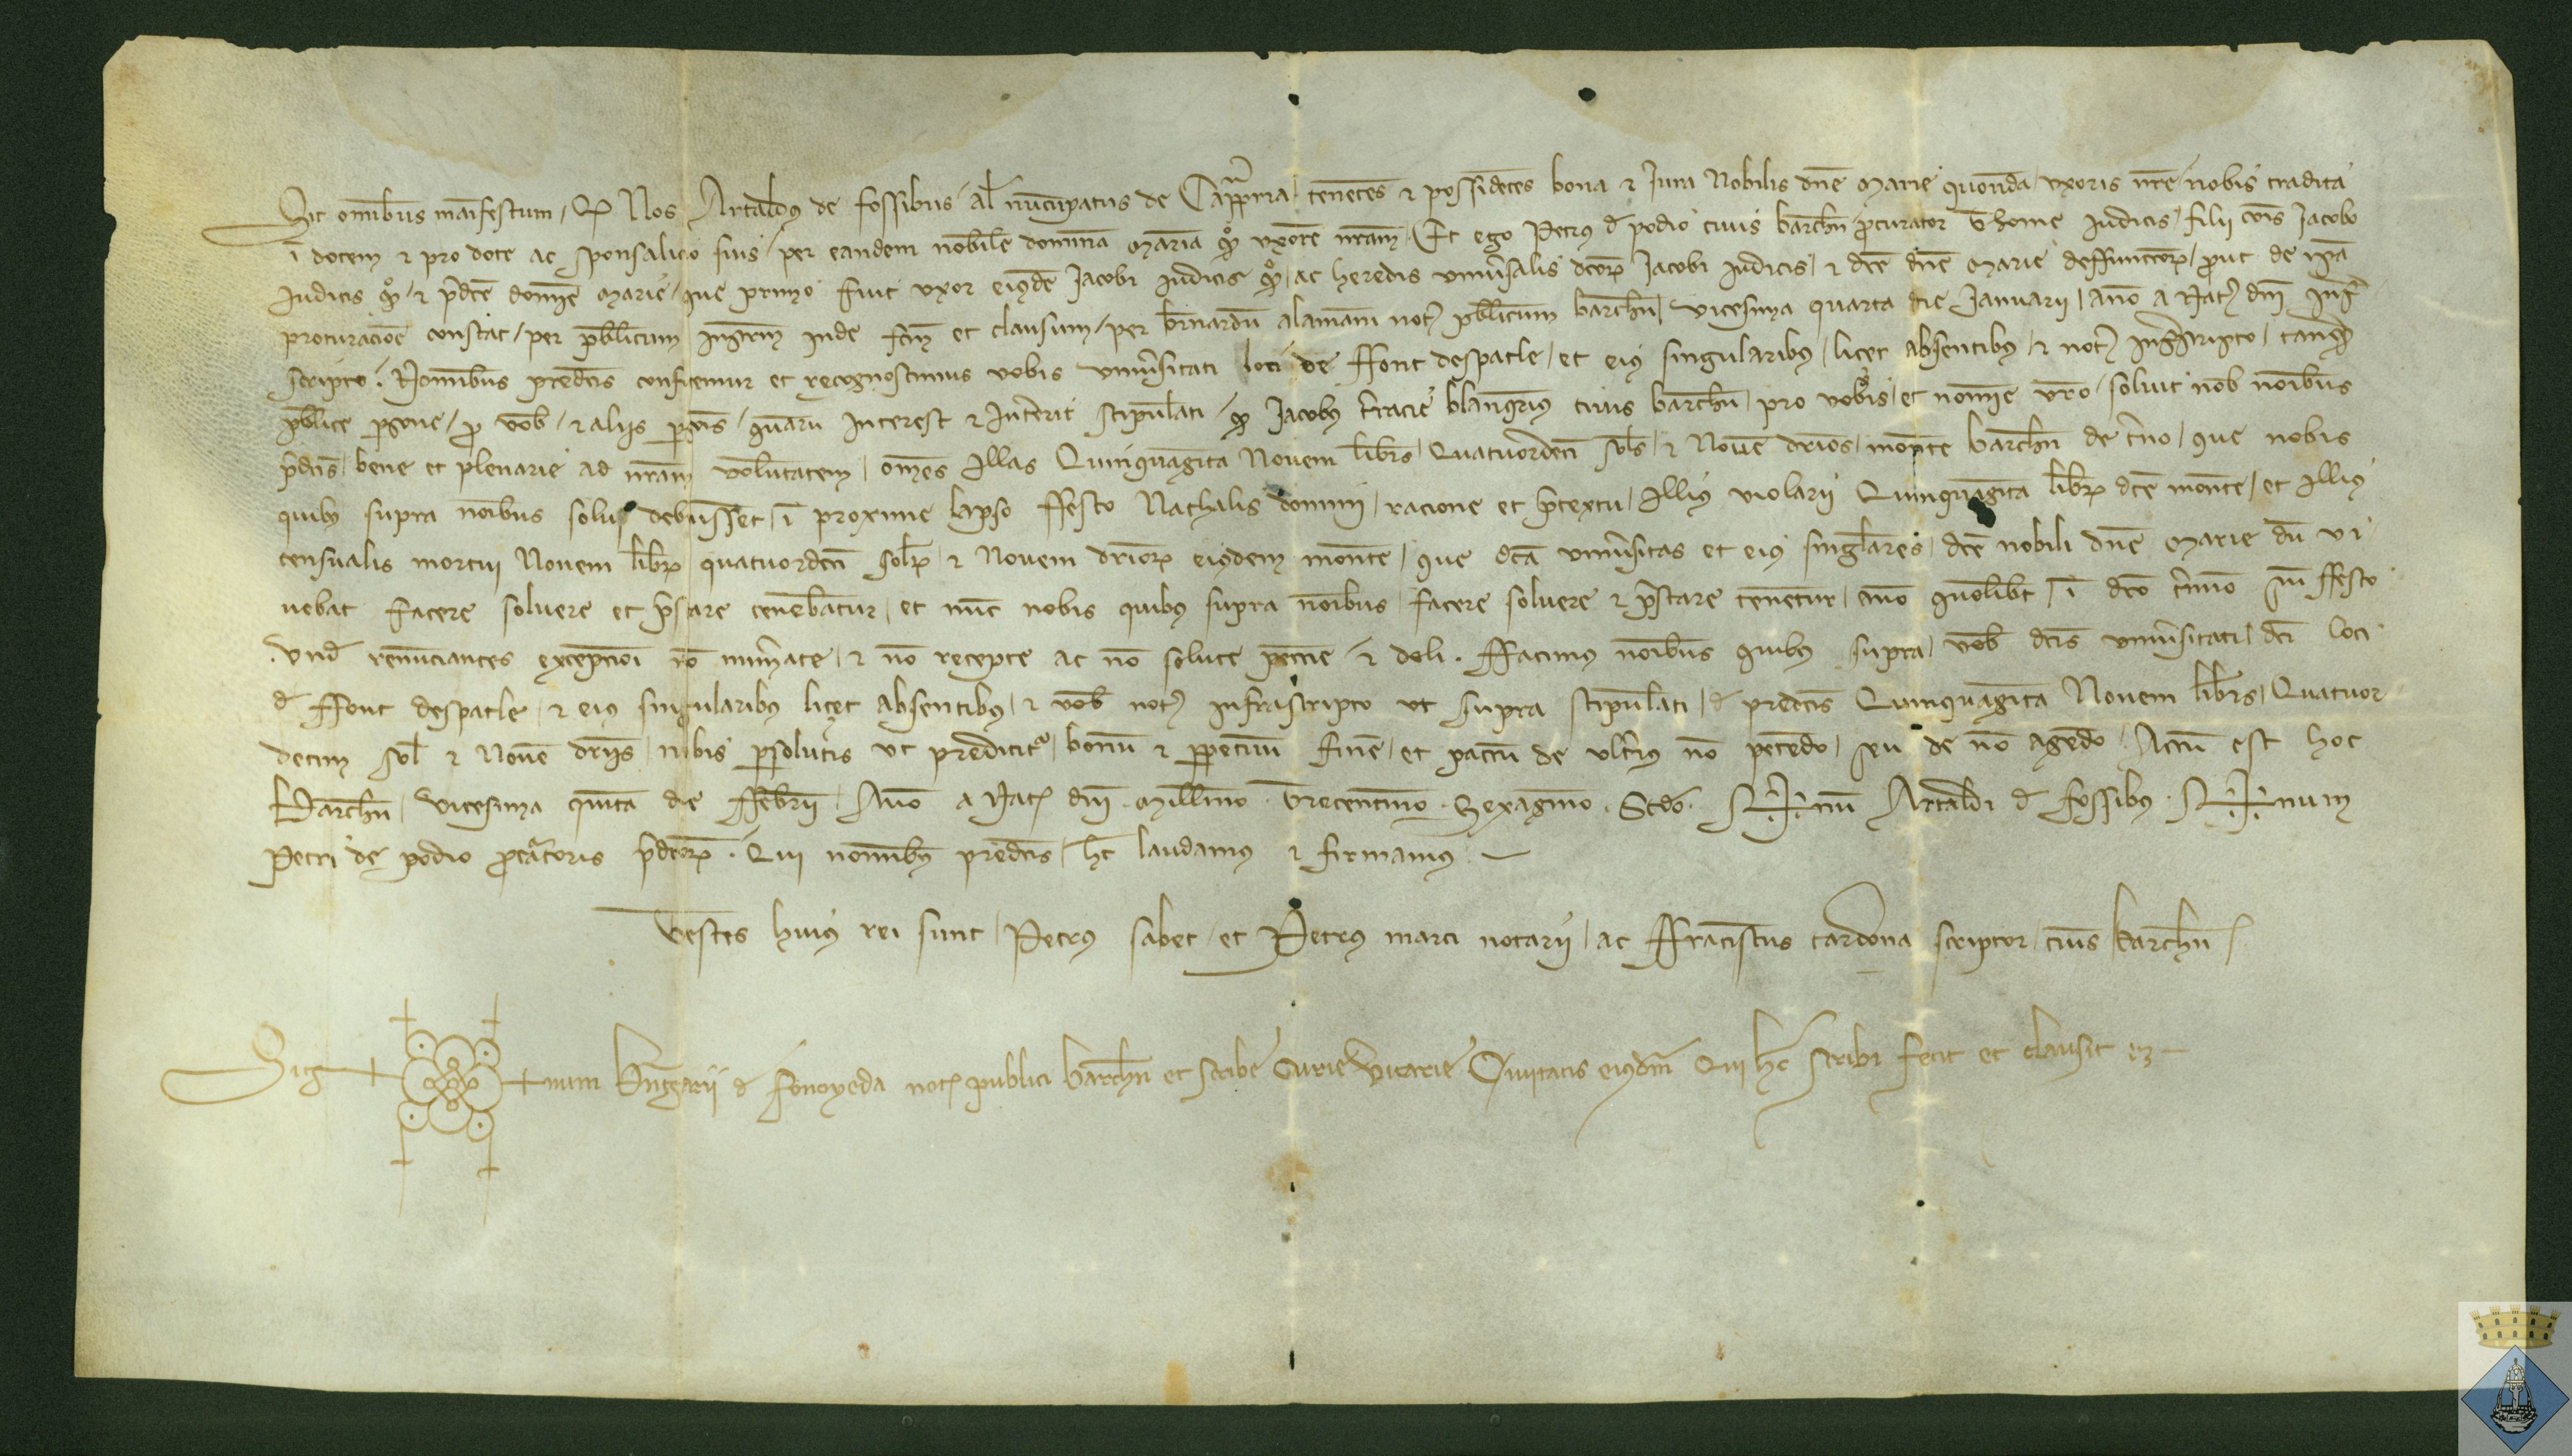 Sit omibus manifestum, Q Nos Artaldus de fossibus al nuncupatus de Caprria tenentes & possidetes bona & Jura Nobilis dne Marie quonda uxoris nre nobis tradita
i dotem & pro dote ac sponsalicio suis per eandem nobile domina Maria qo uxore nram. Et ego Petrus d podio civis barchn procurator Thome Judicis, filii cois Jacobo
Judicis qo & pdce domine Marie que primo fuit uxor eiusde Jacobi Judicis qo, ac heredis universalis dcor Jacobi Judicis & dce dne Marie deffunctor, prout de ipa
procuracione constat, per pblicum instrm inde fcm et clausum, per bernardu alamani not publicum barchn, vicesima quarta die Januarii, ano a Nat dni infra
scripto. Nomibus predcis confitemur et recognoscimus vobis universitati loci de Ffont despatle, et eius singularibus, licet absentibus & not infrascripto, tanq
pblice psone, p vob & aliis psonis, quaru interest & interit stipulati, q Jacobus blanquerius civis barchn, pro vobis, et nomine vro, solvit nob noibus
pdcis, bene et plenarie ad nram voluntatem, omes illas Quinquaginta Novem libras, Quatuordeci sols, & Nove drios, monte barchn de tno, que nobis
quibus supra noibus solui debuissent, i proxime lapso Ffesto Nathalis domini, racione et ptextu, illius violarii Quinquaginta libr dce monete, et illius
censualis mortui Novem libr quatuordeci solr & Novem drior eiusdem monete, que dca universitas et eius singlares, dce nobili dne Marie du vi
vebat facere solvere et pstare tenebatur, et nuc nobis quibus supra noibus facere solvere & pstare tenetur, ano quolibt, i dco tmino sui ffesto
Und renunciantes excepcioi no numate, & no recepte ac no solute peccie & doli. Ffacimus noibus quibus supra, vob dcis universitati dci loci
d Ffont despatle, & eius singularibus licet absentibus & vob not infrascripto ut supra stipulati, d predcis Quinquaginta Novem libris, Quatuor
decim sol & Nove driis, nobis psolutis ut predicitr, bonu & ppetuu fine, et pactu de ultius no petendo, seu de no agendo. Actu est hoc
Barchn, vicesima quita die Ffebrii, Ano a Nat dni Millmo Trecentmo Sexagmo Scdo. S+nu Artaldi d fossibus. S+num
Petri de podio pcatoris pdcor. Qui nomibus predcis, hc laudamus & firmamus.
Testes huius rei sunt, Petrus sabet, et Petrus marci notarii, ac Ffranciscus cardona scriptor, civis barchn
Sig+num Berengarii d fonoyeda not publici barchn et scribe Curie Vicarie Civitatis eiusdm Qui hc scribi fecit et clausit